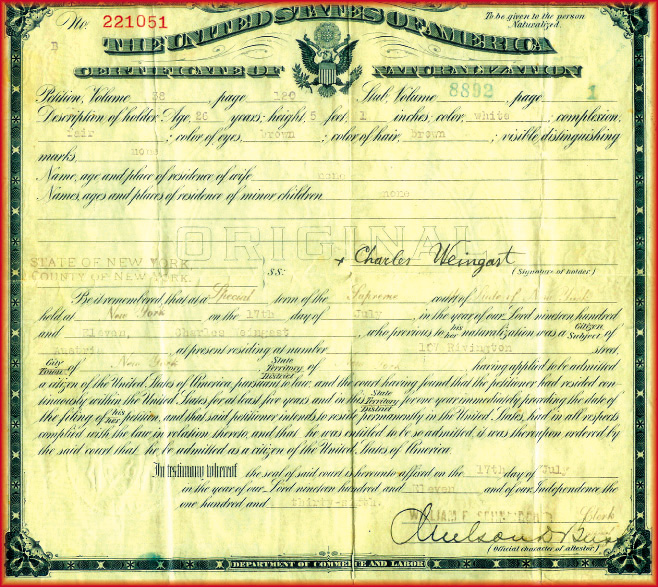 No. 221051
To be given to the person Naturalized.
D
THE UNITED STATES OF AMERICA
CERTIFICATE OF NATURALIZATION
Petition, Volume 38 page 120 Stub, Volume 8892 page 1
Description of holder: Age, 26 years; height, 5 feet, 1 inches; color, white; complexion,
fair; color of eyes, brown; color of hair, brown; visible distinguishing
marks, none
Name, age and place of residence of wife none
Names, ages and places of residence of minor children none
ORIGINAL
STATE OF NEW YORK
COUNTY OF NEW YORK
SS:
x Charles Weingast
(Signature of holder.)
Be it remembered that at a Special term of the Supreme court of
held at New York on the 17th day of July, in the year of our Lord nineteen hundred
and Eleven, Charles Weingast, who previous to his/her naturalization was a Citizen/Subject of
at present residing at number 107 Rivington street,
City/Town of New York State/Territory/District of having applied to be admitted
a citizen of the United States of America, pursuant to law, and the court having found that the petitioner had resided con-
tinuously within the United States for at least five years and in this State/Territory/District for one year immediately preceding the date of
the filing of his/her petition, and that said petitioner intends to reside permanently in the United States, had in all respects
complied with the law in relation thereto, and that he was entitled to be so admitted, it was thereupon ordered by
the said court that he be admitted as a citizen of the United States of America.
In testimony whereof the seal of said court is hereunto affixed on the 17th day of July
in the year of our Lord nineteen hundred and Eleven and of our Independence the
one hundred and
WILLIAM F. SCHNEIDER Clerk
(Official character of attestor.)
DEPARTMENT OF COMMERCE AND LABOR